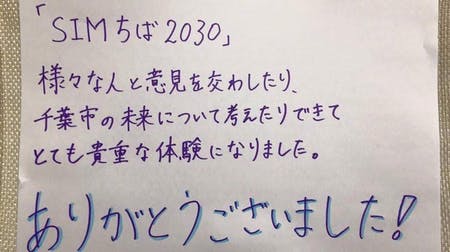 「SIMちば2030」
様々な人と意見を交わしたり、
千葉市の未来について考えたりできて
とても貴重な体験になりました。
ありがとうございました!